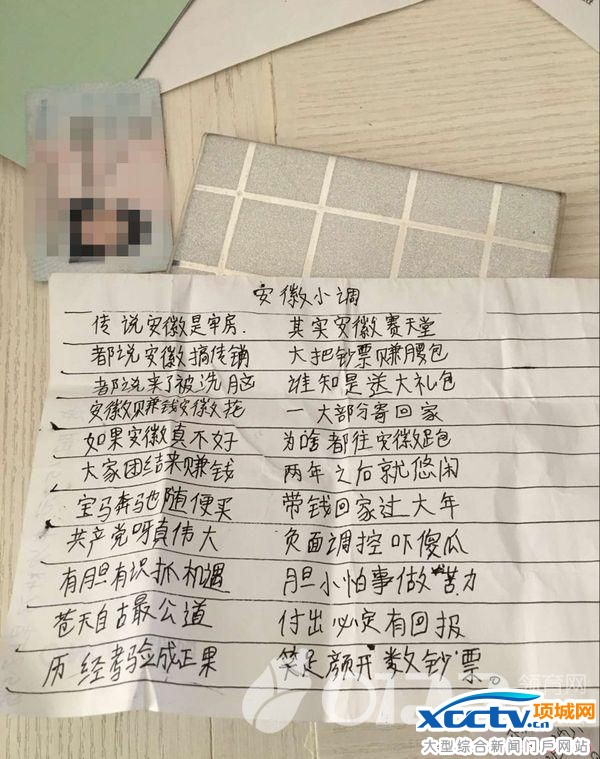 安徽小调
传说安徽是牢房. 其实安徽赛天堂
都说安徽搞传销 大把钞票赚腰包
都说来了被洗脑 谁知是送大礼包
安徽赚钱安徽花 一大部分寄回家
如果安徽真不好 为啥都往安徽跑
大家团结来赚钱 两年之后就悠闲
宝马奔驰随便买 带钱回家过大年
共产党呀真伟大 负面调控吓傻瓜
有胆有识抓机遇 胆小怕事做苦力
苍天自古最公道 付出必定有回报
历经考验成正果 笑逐颜开数钞票。
xcctv.cn 项城网
大型综合新闻门户网站